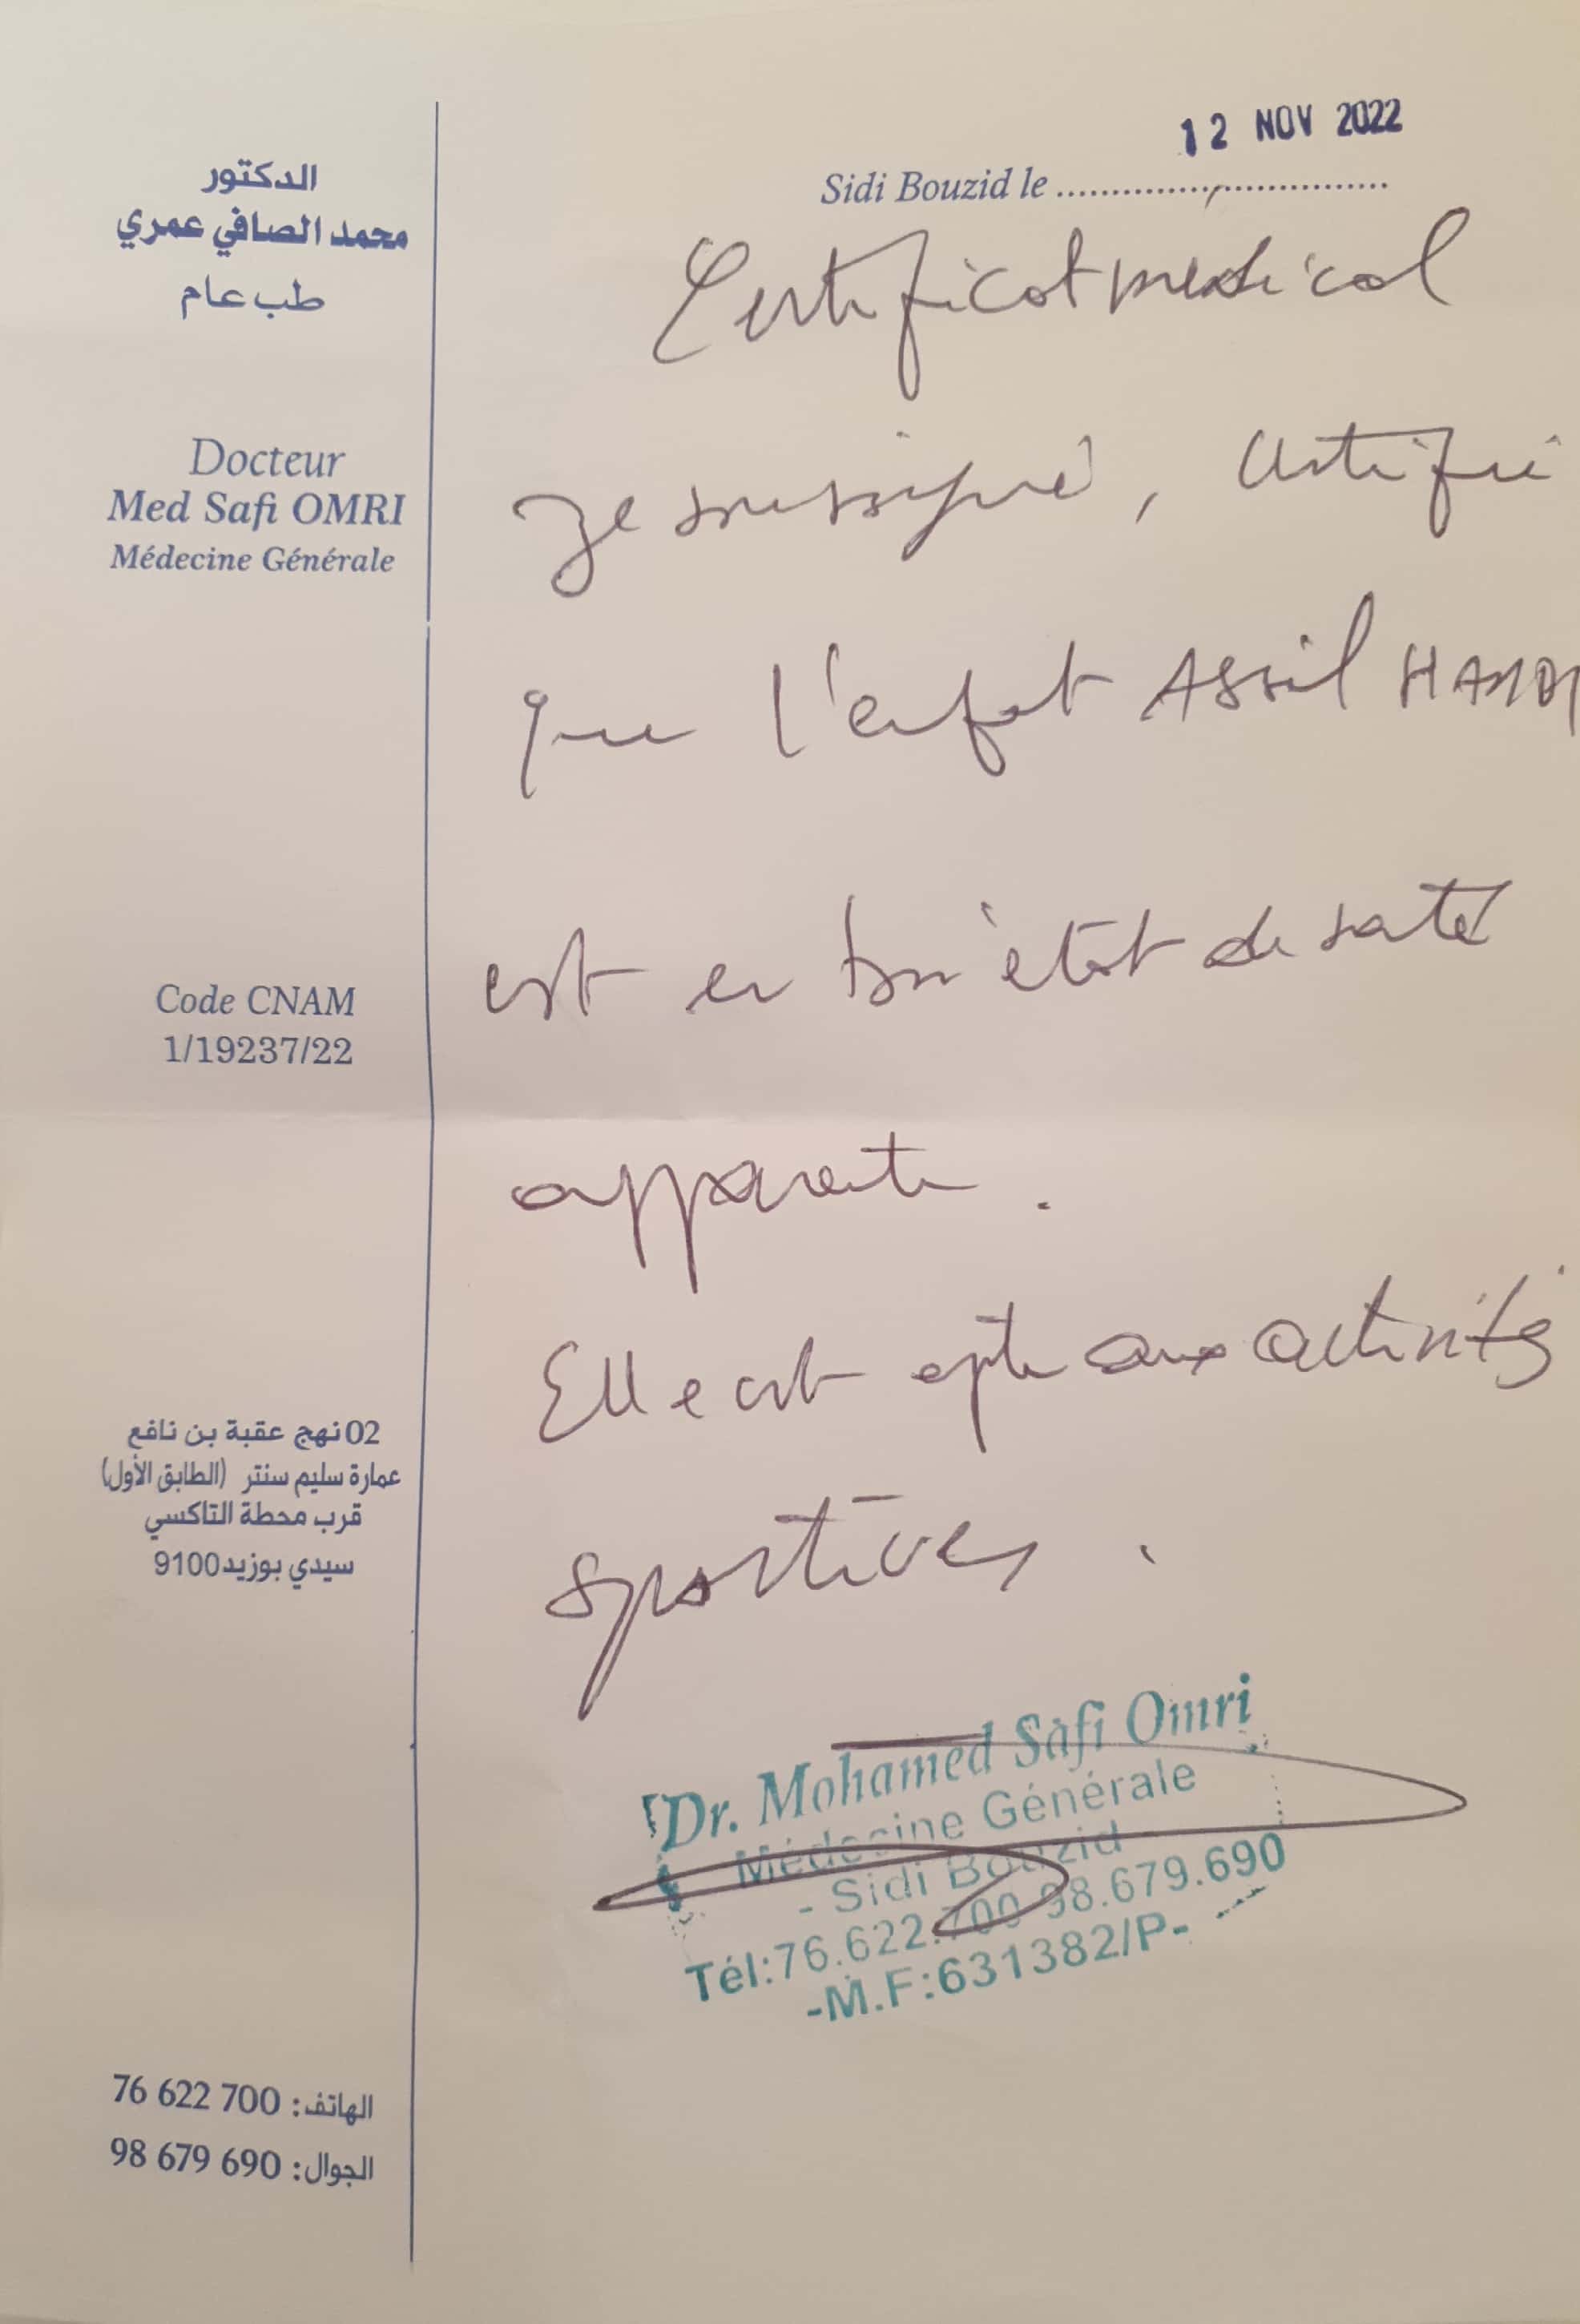 الدكتور
محمد الصافي عمري
طب عام
Docteur
Med Safi OMRI
Médecine Générale
Code CNAM
1/19237/22
02 نهج عقبة بن نافع
عمارة سليم سنتر (الطابق الأول)
قرب محطة التاكسي
سيدي بوزيد 9100
الهاتف: 76 622 700
الجوال: 98 679 690
12 NOV 2022
Sidi Bouzid le
Certificat medical
Je soussigné, certifie
que l'enfant Assil
est en bon état de santé
apparente.
Elle est apte aux activités
sportives.
Dr. Mohamed Safi Omri
Médecine Générale
- Sidi Bouzid
Tél:76.622.700 98.679.690
-M.F:631382/P-